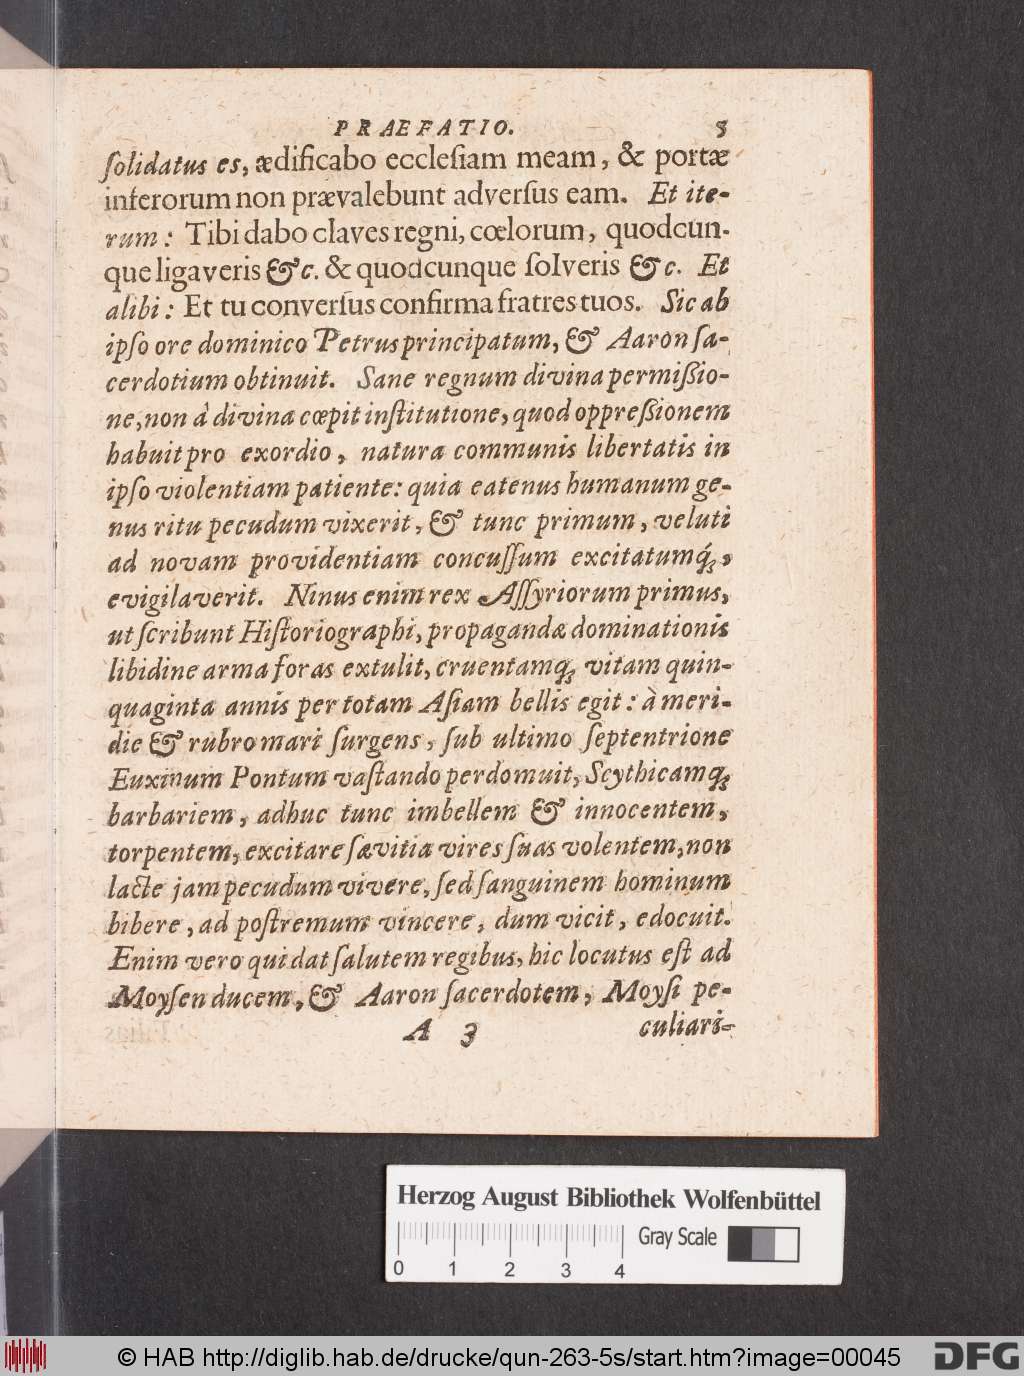 PRAEFATIO. 5
ſolidatus es, ædificabo eccleſiam meam, & portæ
inferorum non prævalebunt adverſus eam. Et ite-
rum: Tibi dabo claves regni, cœlorum, quodcun-
que ligaveris &c. & quodcunque ſolveris &c. Et
alibi: Et tu converſus confirma fratres tuos. Sic ab
ipſo ore dominico Petrus principatum, & Aaron ſa-
cerdotium obtinuit. Sane regnum divina permißio-
ne, non à divina cœpit inſtitutione, quod oppreßionem
habuit pro exordio, natura communis libertatis in
ipſo violentiam patiente: quia eatenus humanum ge-
nus ritu pecudum vixerit, & tunc primum, veluti
ad novam providentiam concuſſum excitatumq́;,
evigilaverit. Ninus enim rex Aſſyriorum primus,
ut ſcribunt Hiſtoriographi, propagandæ dominationis
libidine arma foras extulit, cruentamq; vitam quin-
quaginta annis per totam Aſiam bellis egit: à meri-
die & rubro mari ſurgens, ſub ultimo ſeptentrione
Euxinum Pontum vaſtando perdomuit, Scythicamq;
barbariem, adhuc tunc imbellem & innocentem,
torpentem, excitare ſævitia vires ſuas volentem, non
lacte jam pecudum vivere, ſed ſanguinem hominum
bibere, ad poſtremum vincere, dum vicit, edocuit.
Enim vero qui dat ſalutem regibus, hic locutus eſt ad
Moyſen ducem, & Aaron ſacerdotem, Moyſi pe-
A 3 culiari-
Herzog August Bibliothek Wolfenbüttel
Gray Scale
0 1 2 3 4
© HAB http://diglib.hab.de/drucke/qun-263-5s/start.htm?image=00045
DFG